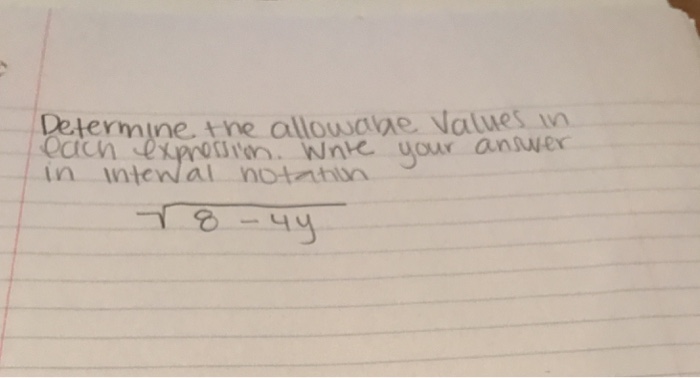 Determine the allowable values in
each expression. Write your answer
in interval notation
√8 - 4y